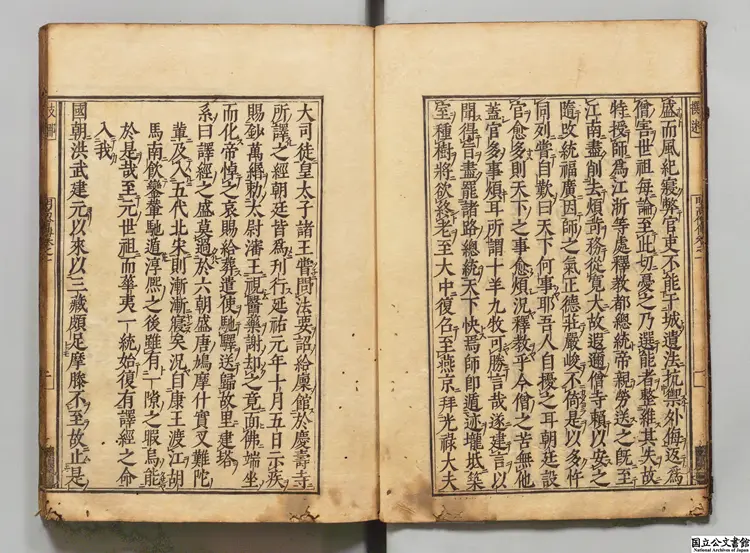 盛而風紀寢弊官吏不能干城遺法抗禦外侮返為
僧害世祖每論至此切憂之乃選能者整維其失故
特授師為江浙等處釋教都總統帝親勞送之既至
江南盡削去煩苛務從寬大故遐邇僧寺賴以安之
隨改統福廣因師之氣正德莊嚴峻不倚是以多忤
同列嘗自歎曰天下何事耶吾人自擾之耳朝廷設
官愈多則天下之事愈煩況釋教乎今僧之苦無他
蓋官多事煩耳所謂十羊九牧可勝言哉遂建言以
聞得旨盡罷諸路總統天下快焉師即遁迹壠坻築
室種樹將欲終老至大中復召至燕京拜光祿大夫
大司徒皇太子諸王嘗問法要詔給廩館於慶壽寺
所譯之經朝廷皆為刊行延祐元年十月五日示疾
賜鈔萬緡勅太尉瀋王視醫藥謝却之竟面佛端坐
而化帝悼之哀賜給葬遣使馳驛送歸故里建塔
系曰譯經之盛莫過於六朝盛唐鳩摩什實叉難陀
輩及入五代北宋則漸漸寢矣況自康王渡江胡
馬南飲鑾輦馳道淳熙之後雖有一隙之暇烏能
於是哉至元世祖而華夷一統始復有譯經之命
入我
國朝洪武建元以來以三藏頗足摩騰不至故止是
国立公文書館
National Archives of Japan